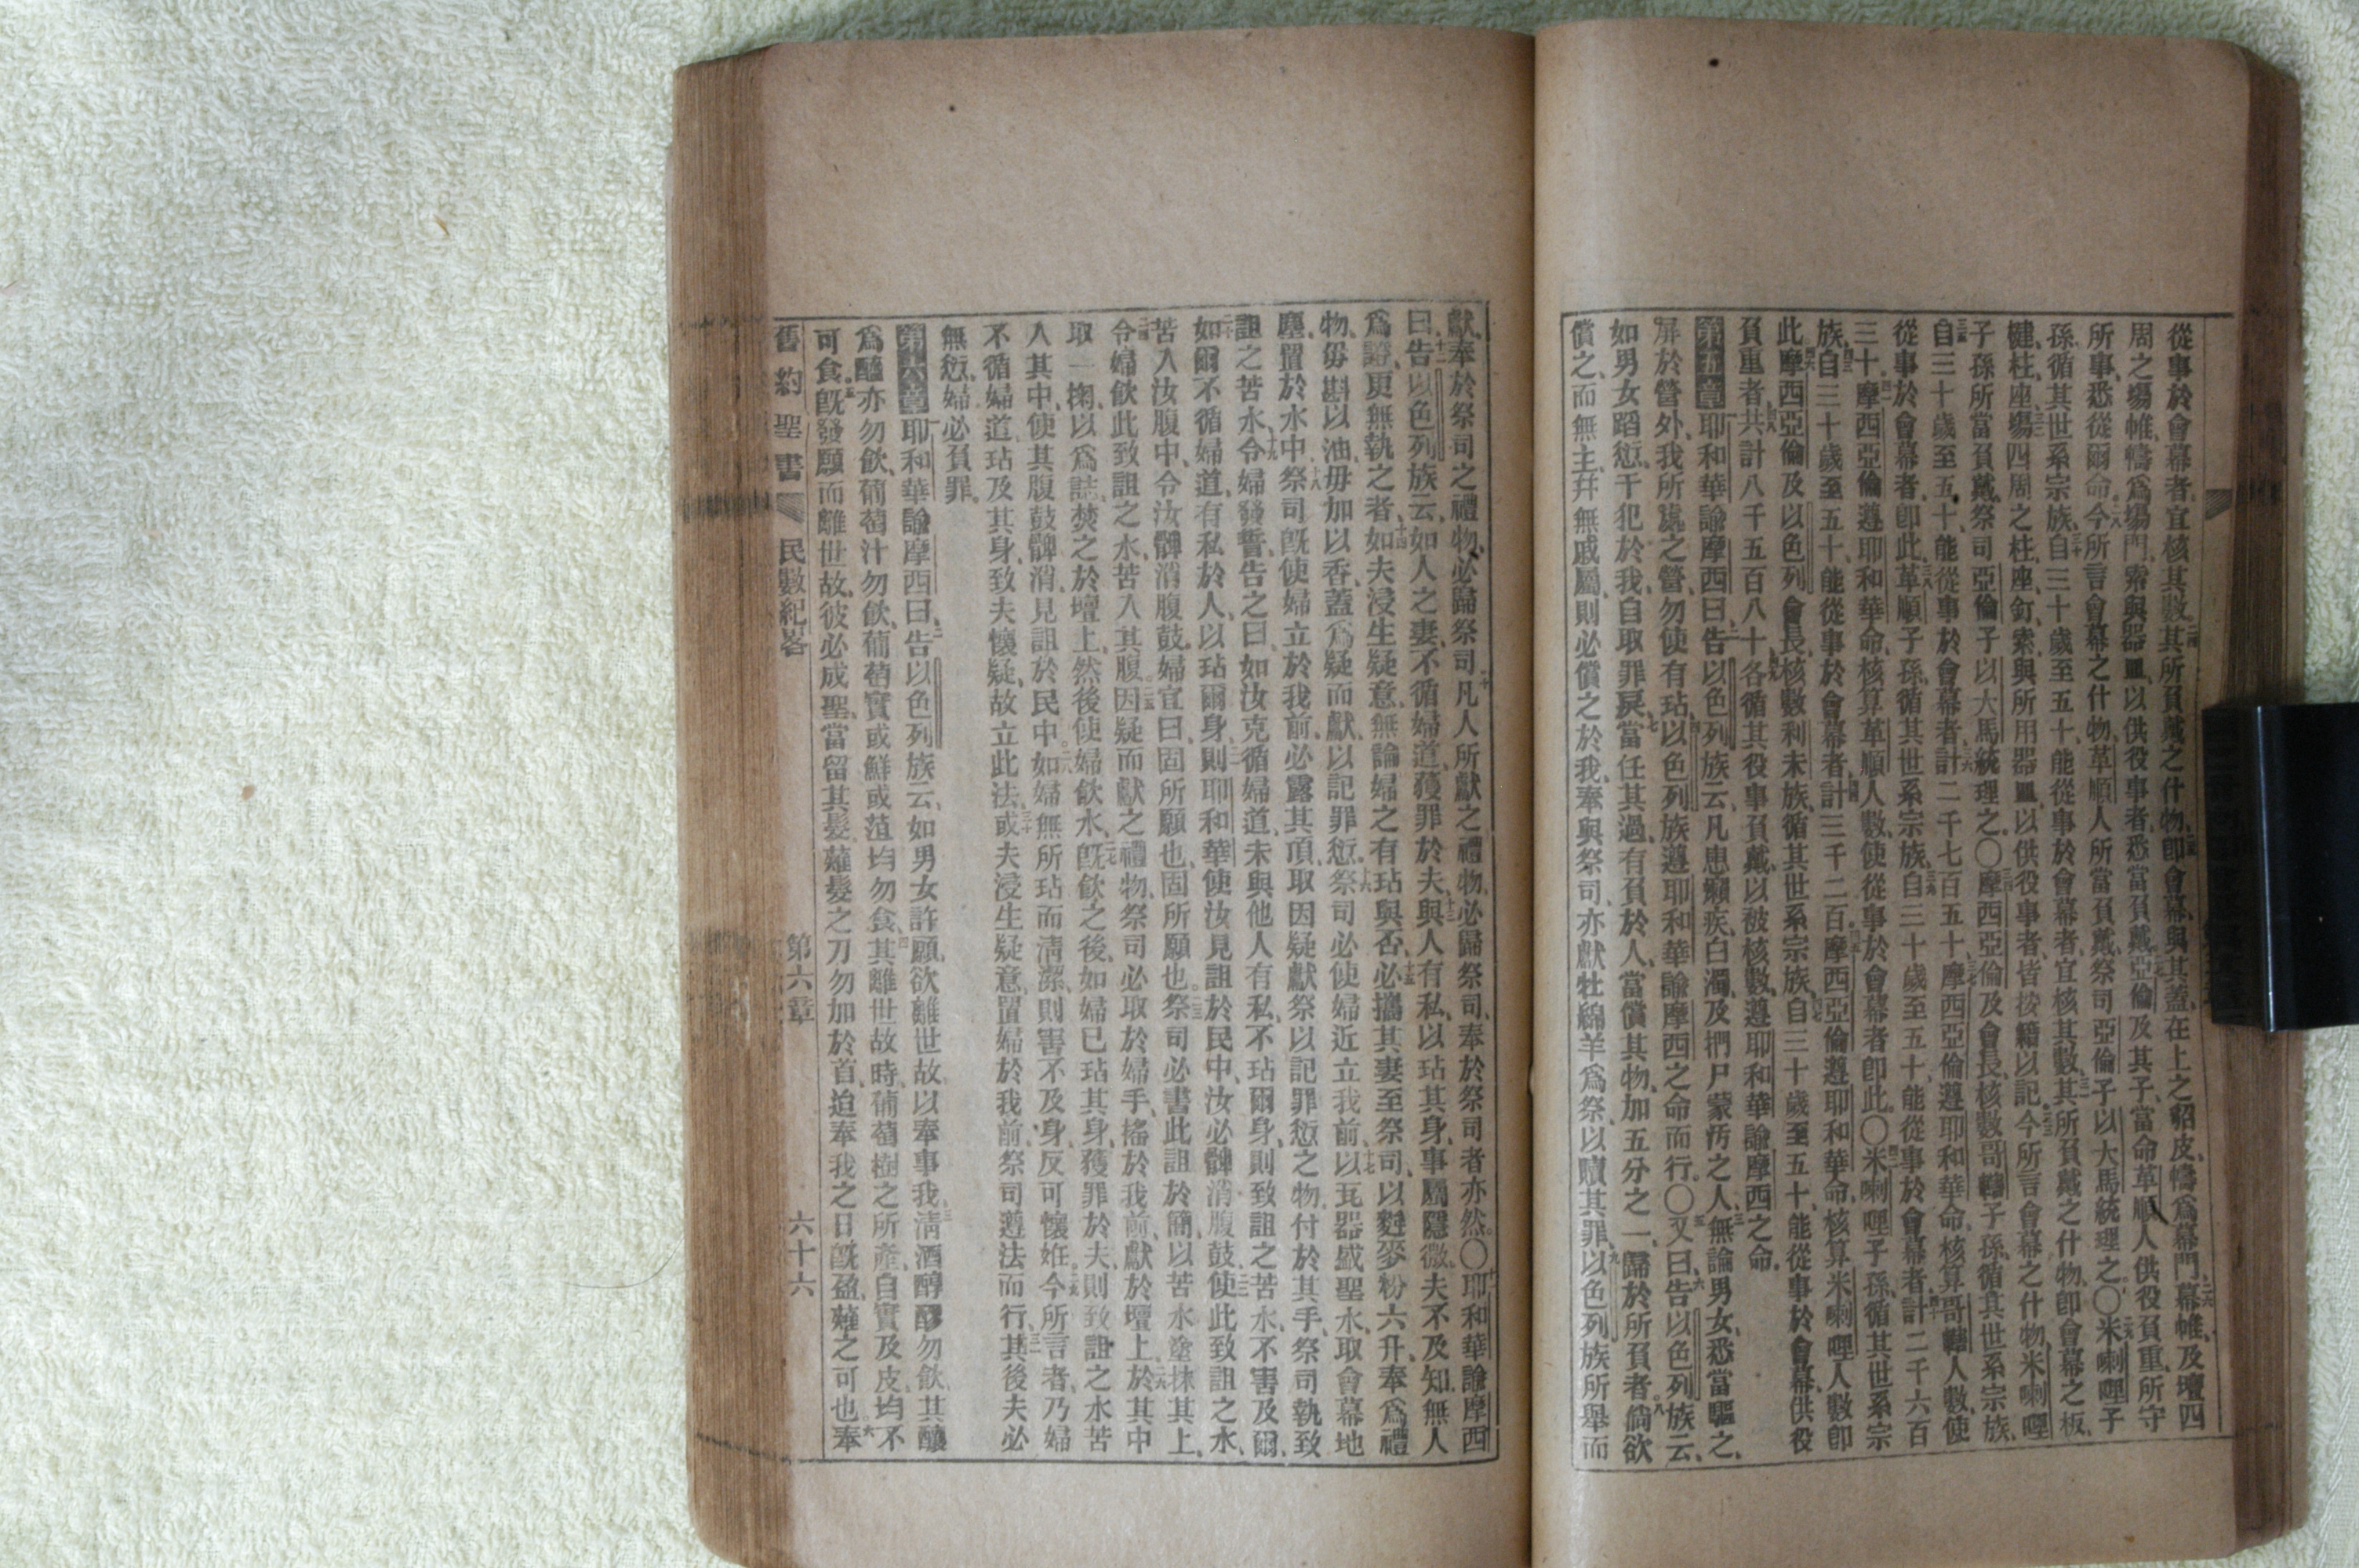 從事於會幕者、宜核其數。二四其所負戴之什物、二五卽會幕、與其蓋、在上之貂皮、幬爲幕門、二六幕帷、及壇四
周之場帷、幬爲場門、索與器皿、以供役事者、悉當負戴、二七亞倫及其子、當命革順人供役負重、所守
所事、悉從爾命。二八今所言會幕之什物、革順人所當負戴、祭司亞倫子以大馬統理之。〇二九米喇哩子
孫、循其世系宗族、三十自三十歲至五十、能從事於會幕者、宜核其數、三一其所負戴之什物、卽會幕之板、
楗、柱、座、三二場四周之柱、座、釘、索、與所用器皿、以供役事者、皆按籍以記。三三今所言會幕之什物、米喇哩
子孫所當負戴、祭司亞倫子以大馬統理之。〇三四摩西亞倫及會長、核數哥轄子孫、循其世系宗族、
三五自三十歲至五十、能從事於會幕者、三六計二千七百五十、三七摩西亞倫遵耶和華命、核算哥轄人數、使
從事於會幕者、卽此。三八革順子孫、循其世系宗族、三九自三十歲至五十、能從事於會幕者、四十計二千六百
三十。四一摩西亞倫遵耶和華命、核算革順人數、使從事於會幕者卽此。〇四二米喇哩子孫、循其世系宗
族、四三自三十歲至五十、能從事於會幕者、四四計三千二百。四五摩西亞倫遵耶和華命、核算米喇哩人數卽
此。四六摩西亞倫及以色列會長、核數利未族、循其世系宗族、四七自三十歲至五十、能從事於會幕、供役
負重者、四八共計八千五百八十、四九各循其役事負戴、以被核數、遵耶和華諭摩西之命。
第五章 耶和華諭摩西曰、二告以色列族云、凡患癩疾、白濁、及捫尸蒙汚之人、三無論男女、悉當驅之、
屏於營外、我所處之營、勿使有玷、四以色列族遵耶和華諭摩西之命而行。〇五又曰、六告以色列族云、
如男女蹈愆、干犯於我、自取罪戾、七當任其過、有負於人、當償其物、加五分之一、歸於所負者。八倘欲
償之、而無主、幷無戚屬、則必償之於我、奉與祭司、亦獻牡綿羊爲祭、以贖其罪、九以色列族所舉而
獻、奉於祭司之禮物、必歸祭司、十凡人所獻之禮物、必歸祭司、奉於祭司者亦然。〇十一耶和華諭摩西
曰、十二告以色列族云、如人之妻、不循婦道、獲罪於夫、十三與人有私、以玷其身、事屬隱微、夫不及知、無人
爲證、更無執之者、十四如夫浸生疑意、無論婦之有玷與否、十五必攜其妻至祭司、以麰麥粉六升、奉爲禮
物、毋斟以油、毋加以香、蓋爲疑而獻、以記罪愆。十六祭司必使婦近立我前、十七以瓦器盛聖水、取會幕地
塵、置於水中。十八祭司旣使婦立於我前、必露其頂、取因疑獻祭、以記罪愆之物、付於其手、祭司執致
詛之苦水、十九令婦發誓、告之曰、如汝克循婦道、未與他人有私、不玷爾身、則致詛之苦水、不害及爾、
二十如爾不循婦道、有私於人、以玷爾身、二一則耶和華使汝見詛於民中、汝必髀消腹鼓、二二使此致詛之水、
苦入汝腹中、令汝髀消腹鼓、婦宜曰、固所願也、固所願也。二三祭司必書此詛於簡、以苦水塗抹其上、
二四令婦飲此致詛之水、苦入其腹。二五因疑而獻之禮物、祭司必取於婦手、搖於我前、獻於壇上、二六於其中
取一掬、以爲誌、焚之於壇上、然後使婦飲水、二七旣飲之後、如婦已玷其身、獲罪於夫、則致詛之水、苦
入其中、使其腹鼓髀消、見詛於民中。二八如婦無所玷而淸潔、則害不及身、反可懷姙。二九今所言者、乃婦
不循婦道、玷及其身、致夫懷疑、故立此法、三十或夫浸生疑意、置婦於我前、祭司遵法而行、三一其後夫必
無愆、婦必負罪。
第六章 耶和華諭摩西曰、二告以色列族云、如男女許願、欲離世故、以奉事我、三淸酒醇醪勿飲、其釀
爲醯亦勿飲、葡萄汁勿飲、葡萄實或鮮或菹、均勿食、四其離世故時、葡萄樹之所產、自實及皮、均不
可食。五旣發願而離世故、彼必成聖、當留其髮、薙髮之刀、勿加於首、迨奉我之日旣盈、薙之可也。六奉
舊約聖書 民數紀畧 第六章 六十六